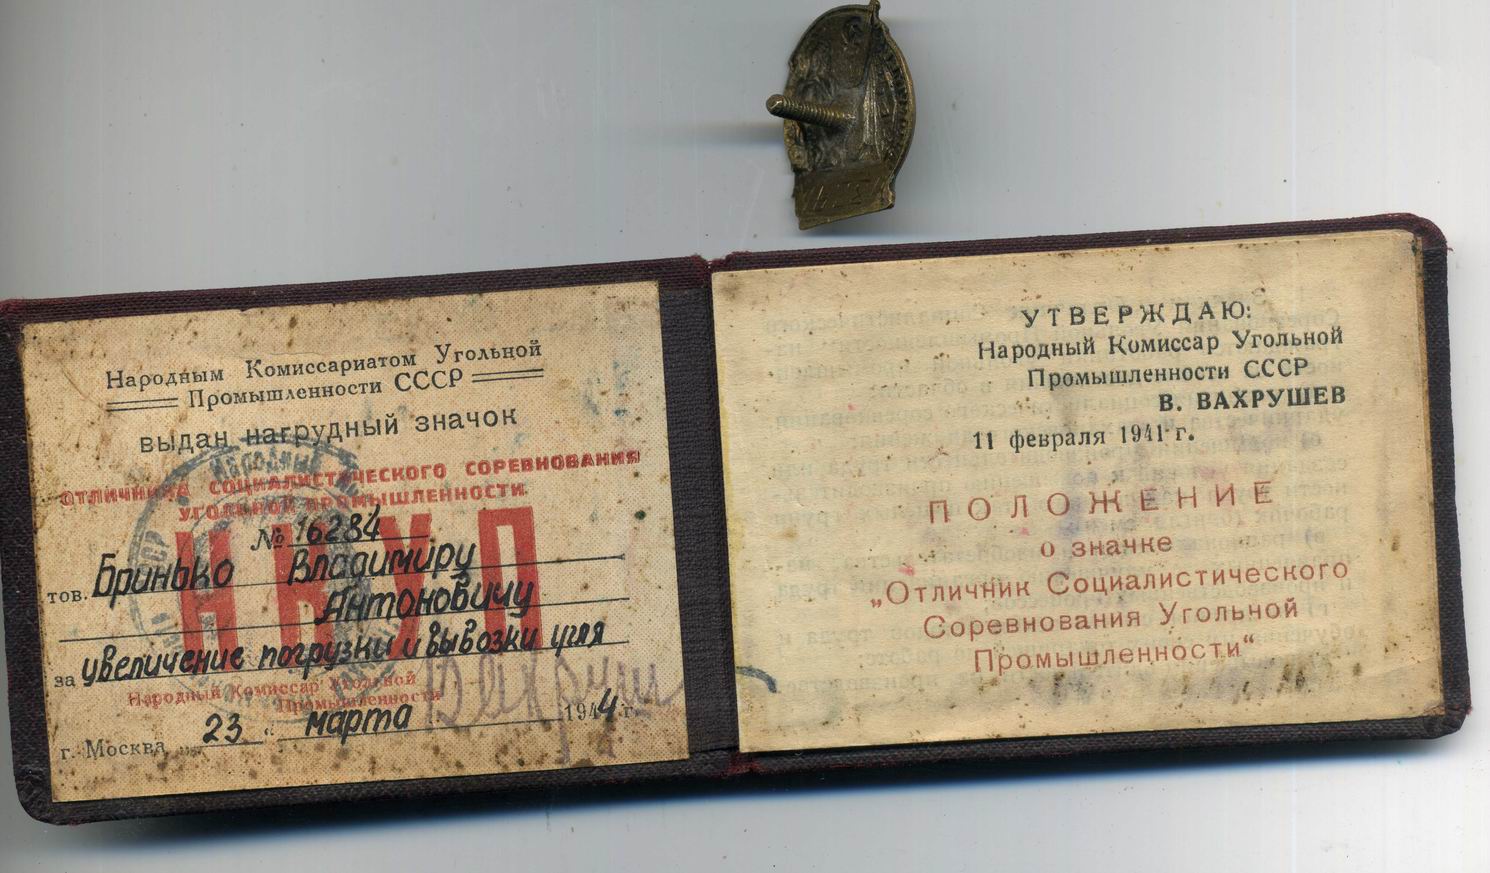 Народным Комиссариатом Угольной
Промышленности СССР
выдан нагрудный значок
ОТЛИЧНИКА СОЦИАЛИСТИЧЕСКОГО СОРЕВНОВАНИЯ
УГОЛЬНОЙ ПРОМЫШЛЕННОСТИ
НКУП
№ 16284
тов. Бринько Владимиру
Антоновичу
за увеличение погрузки и вывозки угля
Народный Комиссар Угольной
Промышленности
г. Москва „ 23 “ марта 1944 г.
УТВЕРЖДАЮ:
Народный Комиссар Угольной
Промышленности СССР
В. ВАХРУШЕВ
11 февраля 1941 г.
ПОЛОЖЕНИЕ
о значке
„Отличник Социалистического
Соревнования Угольной
Промышленности“